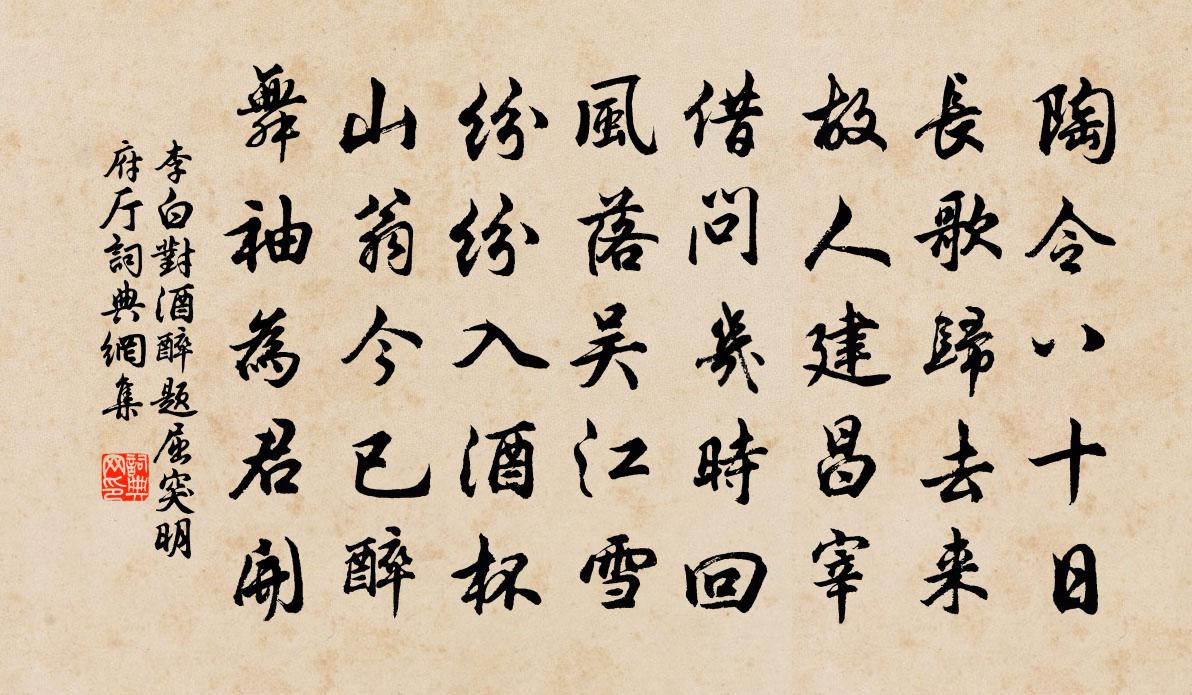 陶令八十日
長歌歸去来
故人建昌宰
借問幾時回
風落吴江雪
紛紛入酒杯
山翁今已醉
舞袖為君開
李白對酒醉題屈突明
府厅詞典網集
詞典网印